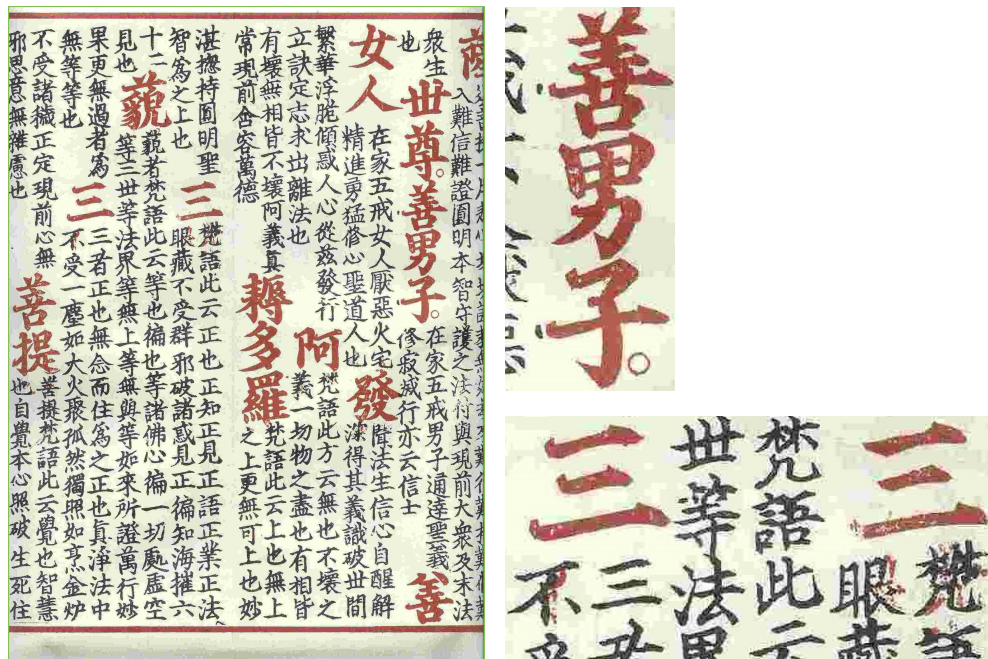 入難信難證圓明本智守護之法付與現前大衆及末法
衆生
也
世尊善男子
在家五戒男子通達聖義
修寂滅行亦云信士
善
女人
在家五戒女人厭惡火宅
精進勇猛修心聖道人也
發
聞法生信心自醒解
深得其義識破世間
繁華浮脆傾惑人心從茲發行
立訣定志求出離法也
阿
梵語此方云無也不壞之
義一切物之盡也有相皆
有壞無相皆不壞阿義真
常現前含容萬德
耨多羅
梵語此云上也無上
之上更無可上也妙
湛揔持圓明聖
智為之上也
三
梵語此云正也正知正見正語正業正法
眼藏不受群邪破諸惑見正徧知海摧六
十二
見也
藐
藐者梵語此云等也徧也等諸佛心徧一切處虛空
等三世等法界等無上等無與等如來所證萬行妙
果更無過者為
無等等也
三
三者正也無念而住為之正也真淨法中
不受一塵如大火聚孤然獨照如烹金炉
不受諸穢正定現前心無
邪思意無雜慮也
菩提
菩提梵語此云覺也智慧
也自覺本心照破生死住
善男子
三
梵語
眼藏
梵語此云
世等法界
三
三者
不受